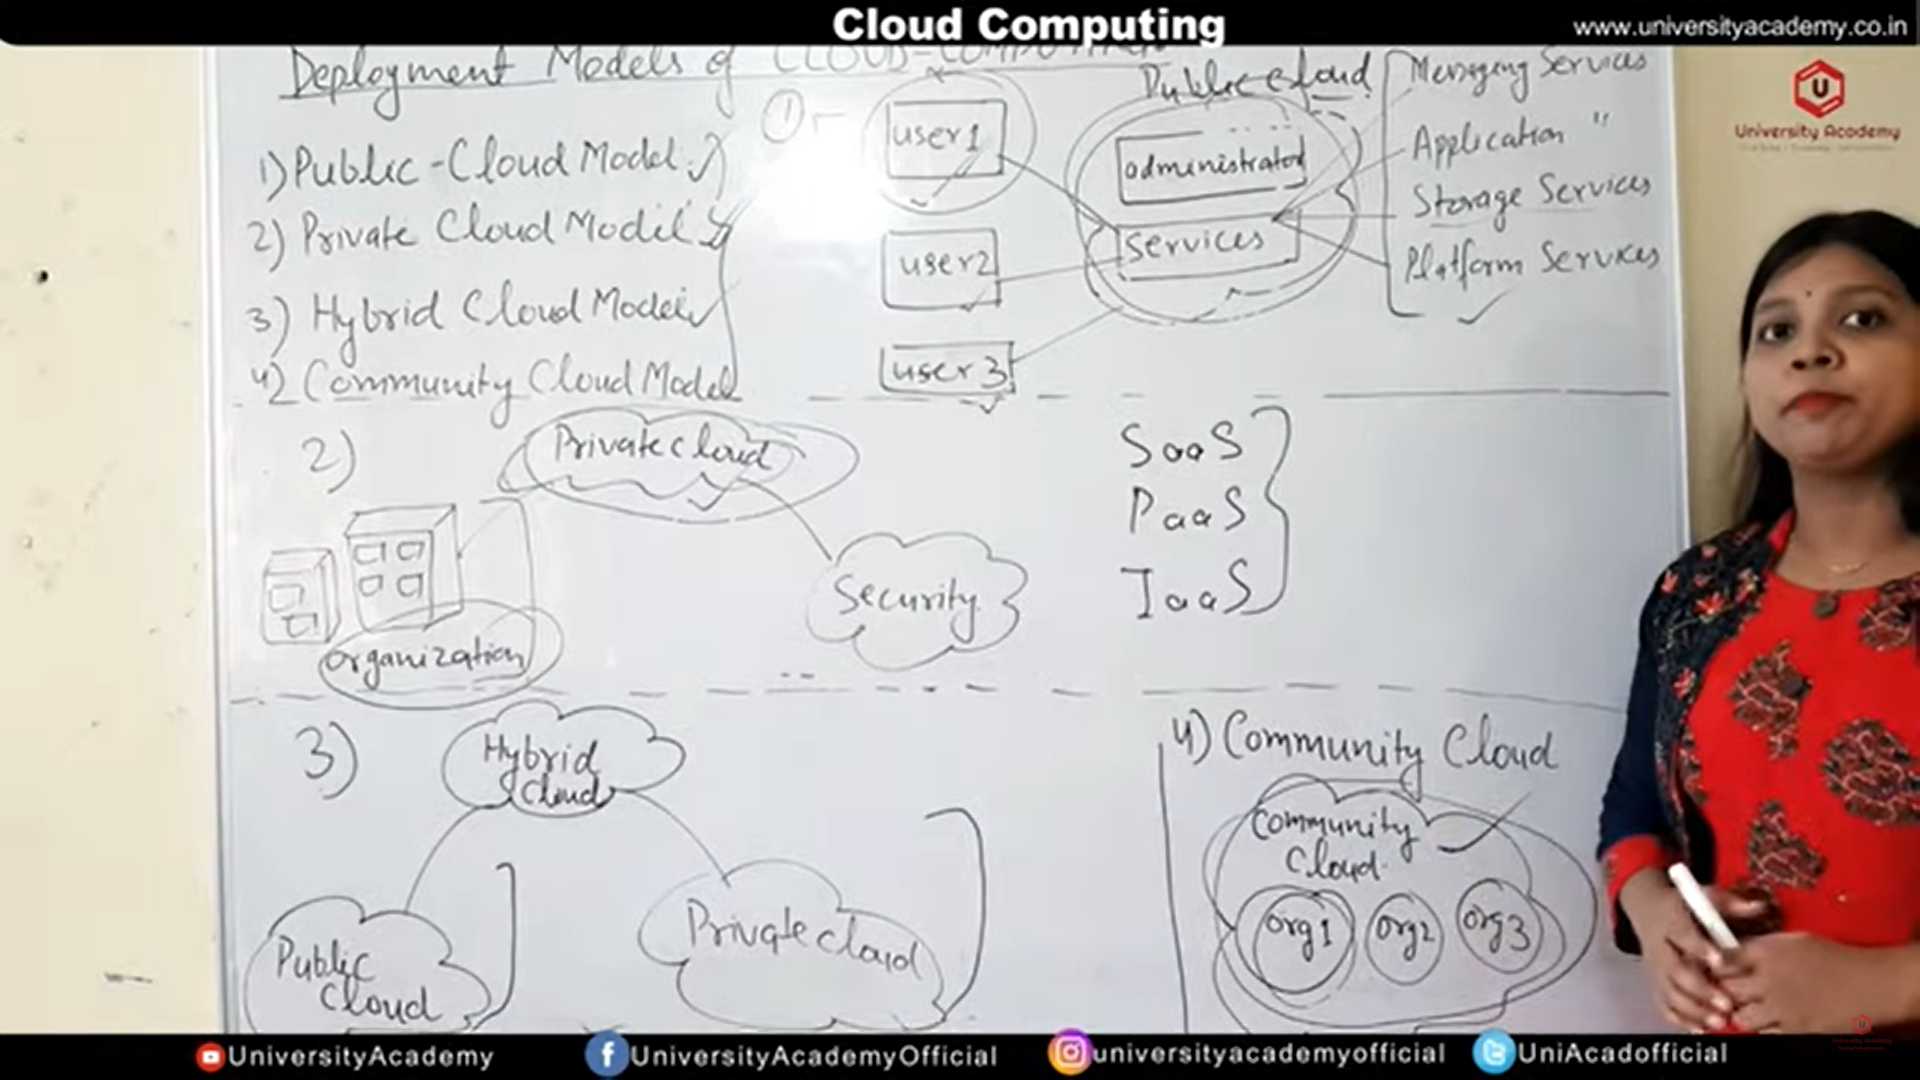 Cloud Computing
www.universityacademy.co.in
Deployment Models of CLOUD-COMPUTING
1) Public-Cloud Model
2) Private Cloud Model
3) Hybrid Cloud Model
4) Community Cloud Model
1
user1
user2
user3
Public Cloud
administrator
Services
Messaging Services
Application "
Storage Services
Platform Services
U
University Academy
2)
Private cloud
organization
Security
SaaS
PaaS
IaaS
3)
Hybrid
Cloud
Public
Cloud
Private cloud
4) Community Cloud
Community
Cloud
org1
org2
org3
UniversityAcademy
UniversityAcademyOfficial
universityacademyofficial
UniAcadofficial